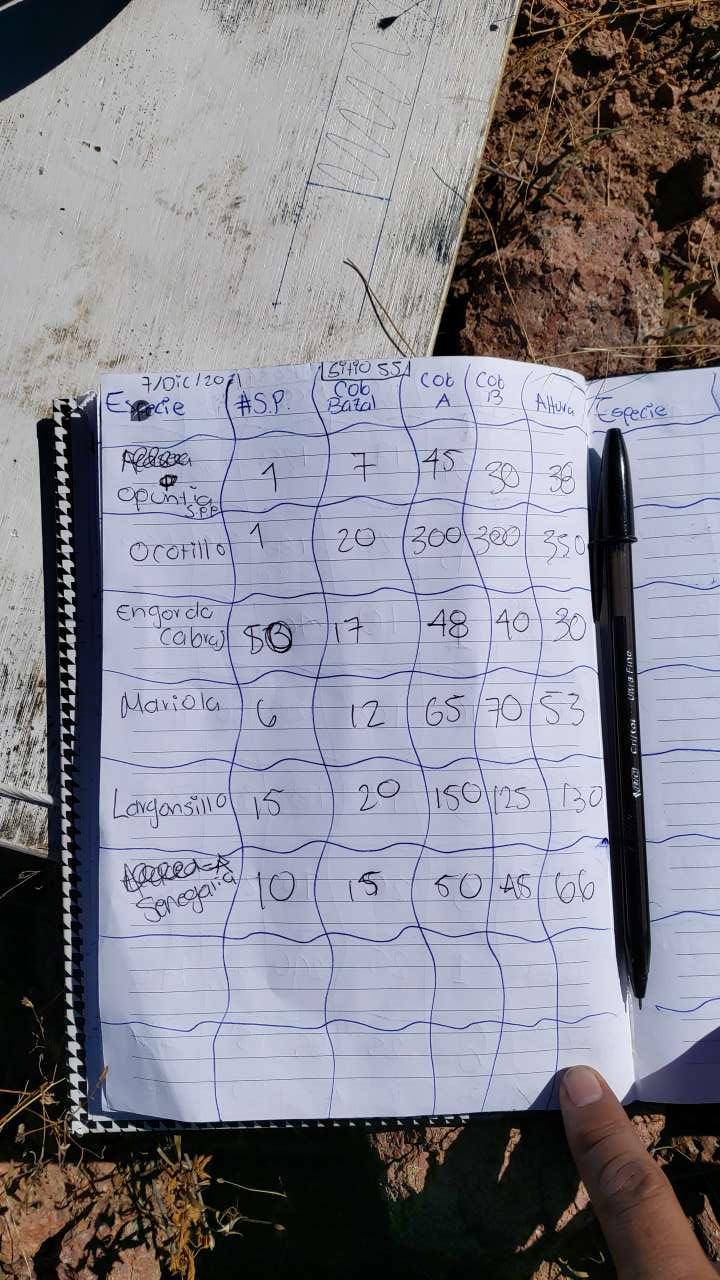 7/Dic/2021 Sitio 551
Especie #S.P. Cob Bazal Cob A Cob B Altura Especie
Opuntia S.P.P. 1 7 45 30 38
Ocotillo 1 20 300 300 350
Engorda Cabras 50 17 48 40 30
Mariola 6 12 65 70 53
Largonsillo 15 20 150 125 130
Senegalia 10 15 50 45 66
Cristal Ultra Fine